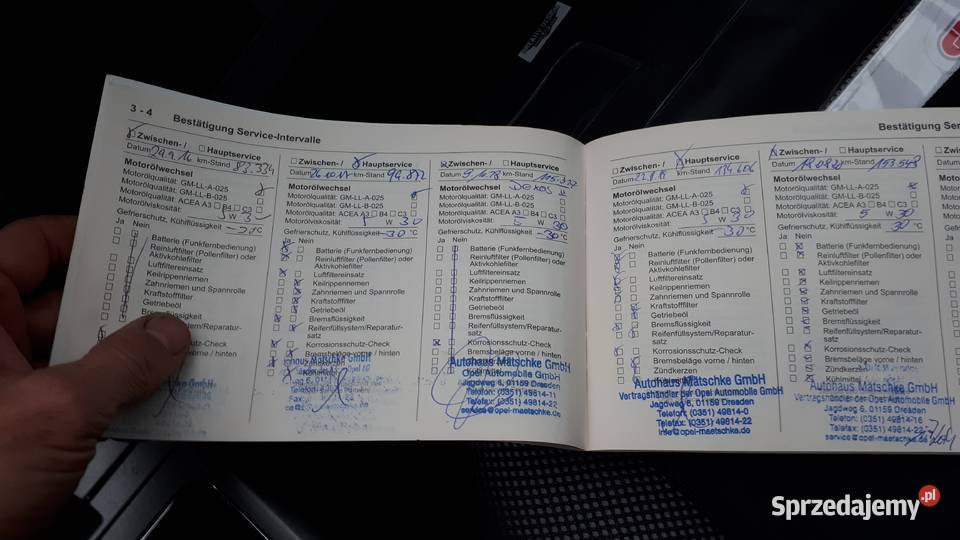 3 - 4 Bestätigung Service-Intervalle
Zwischen- / Hauptservice
Datum 29.9.16 km-Stand 83.334
Motorölwechsel
Motorölqualität: GM-LL-A-025
Motorölqualität: GM-LL-B-025
Motorölqualität: ACEA A3 B4 C3
Motorölviskosität: W
Gefrierschutz, Kühlflüssigkeit °C
Ja Nein
Batterie (Funkfernbedienung)
Reinluftfilter (Pollenfilter) oder
Aktivkohlefilter
Luftfiltereinsatz
Keilrippenriemen
Zahnriemen und Spannrolle
Kraftstofffilter
Getriebeöl
Bremsflüssigkeit
system/Reparatur-
Check
vorne / hinten
Zwischen- / Hauptservice
Datum km-Stand 94.872
Motorölwechsel
Motorölqualität: GM-LL-A-025
Motorölqualität: GM-LL-B-025
Motorölqualität: ACEA A3 B4 C3
Motorölviskosität: W 30
Gefrierschutz, Kühlflüssigkeit -30 °C
Ja Nein
Batterie (Funkfernbedienung)
Reinluftfilter (Pollenfilter) oder
Aktivkohlefilter
Luftfiltereinsatz
Keilrippenriemen
Zahnriemen und Spannrolle
Kraftstofffilter
Getriebeöl
Bremsflüssigkeit
Reifenfüllsystem/Reparatur-
satz
Korrosionsschutz-Check
Bremsbeläge vorne / hinten
Matschke GmbH
Zwischen- / Hauptservice
Datum km-Stand
Motorölwechsel Dexos
Motorölqualität: GM-LL-A-025
Motorölqualität: GM-LL-B-025
Motorölqualität: ACEA A3 B4 C3
Motorölviskosität: 5 W 30
Gefrierschutz, Kühlflüssigkeit -30 °C
Ja Nein
Batterie (Funkfernbedienung)
Reinluftfilter (Pollenfilter) oder
Aktivkohlefilter
Luftfiltereinsatz
Keilrippenriemen
Zahnriemen und Spannrolle
Kraftstofffilter
Getriebeöl
Bremsflüssigkeit
Reifenfüllsystem/Reparatur-
satz
Korrosionsschutz-Check
Bremsbeläge vorne / hinten
Autohaus Matschke GmbH
Opel Automobile GmbH
Jagdweg 6, 01159 Dresden
Telefon: (0351) 49814-11
Telefax: (0351) 49814-22
service@opel-maetschke.de
Bestätigung Ser
Zwischen- / Hauptservice
Datum km-Stand 134.606
Motorölwechsel
Motorölqualität: GM-LL-A-025
Motorölqualität: GM-LL-B-025
Motorölqualität: ACEA A3 B4 C3
Motorölviskosität: 5 W 30
Gefrierschutz, Kühlflüssigkeit -30 °C
Ja Nein
Batterie (Funkfernbedienung)
Reinluftfilter (Pollenfilter) oder
Aktivkohlefilter
Luftfiltereinsatz
Keilrippenriemen
Zahnriemen und Spannrolle
Kraftstofffilter
Getriebeöl
Bremsflüssigkeit
Reifenfüllsystem/Reparatur-
satz
Korrosionsschutz-Check
Bremsbeläge vorne / hinten
Zündkerzen
Autohaus Mätschke GmbH
Vertragshändler der Opel Automobile GmbH
Jagdweg 6, 01159 Dresden
Telefon: (0351) 49814-0
Telefax: (0351) 49814-22
info@opel-maetschke.de
Zwischen- / Hauptservice
Datum km-Stand 153.548
Motorölwechsel
Motorölqualität: GM-LL-A-025
Motorölqualität: GM-LL-B-025
Motorölqualität: ACEA A3 B4 C3
Motorölviskosität: 5 W 30
Gefrierschutz, Kühlflüssigkeit 30 °C
Ja Nein
Batterie (Funkfernbedienung)
Reinluftfilter (Pollenfilter) oder
Aktivkohlefilter
Luftfiltereinsatz
Keilrippenriemen
Zahnriemen und Spannrolle
Kraftstofffilter
Getriebeöl
Bremsflüssigkeit
Reifenfüllsystem/Reparatur-
satz
Korrosionsschutz-Check
Bremsbeläge vorne / hinten
Zündkerzen
Kühlmittel
Autohaus Mätschke GmbH
Vertragshändler der Opel Automobile GmbH
Jagdweg 6, 01159 Dresden
Telefon: (0351) 49814-16
Telefax: (0351) 49814-22
service@opel-maetschke.de
Sprzedajemy.pl